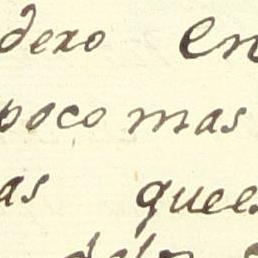 dero en
poco mas
as quee